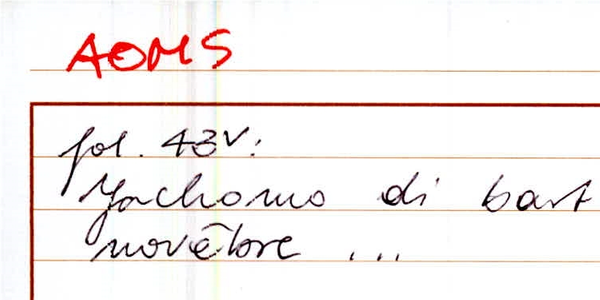 AOMS
fol. 43v:
Jachomo di bart
novēbre ...